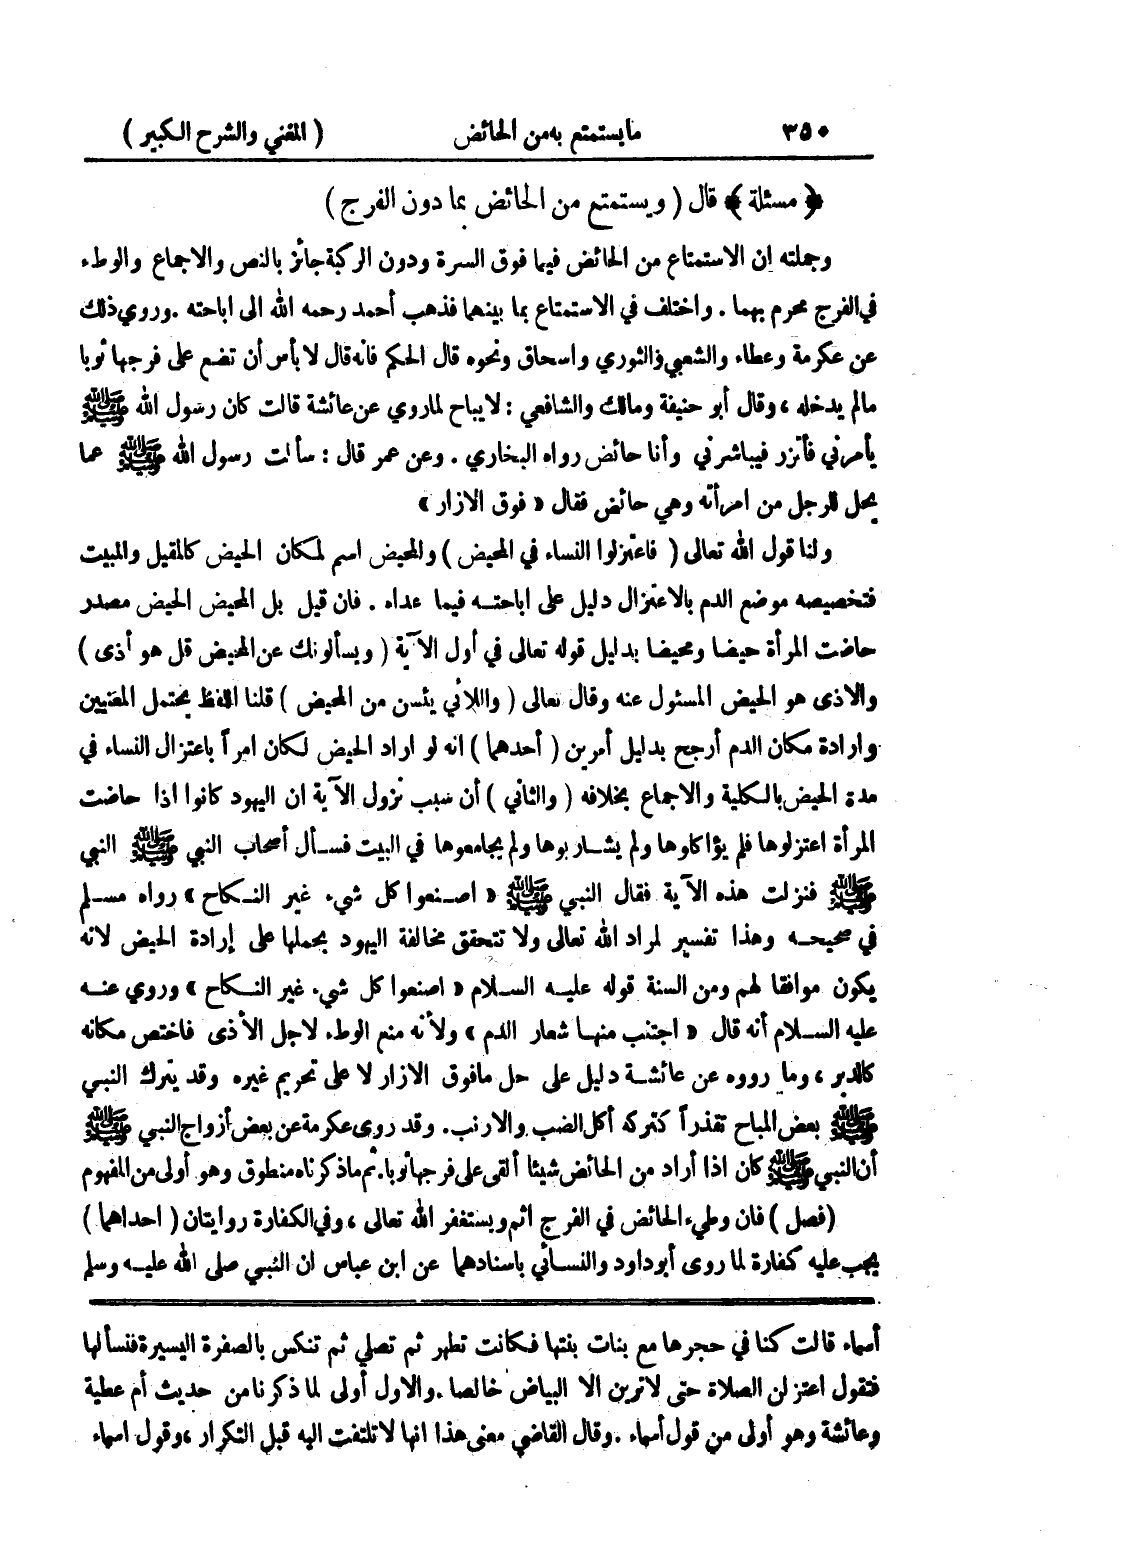 ٣٥٠ مايستمتع به من الحائض ( المغني والشرح الكبير )
﴿ مسئلة ﴾ قال ( ويستمتع من الحائض بما دون الفرج )
وجملته ان الاستمتاع من الحائض فيما فوق السرة ودون الركبة جائز بالنص والاجماع والوطء
في الفرج محرم بهما . واختلف في الاستمتاع بما بينهما فذهب أحمد رحمه الله الى اباحته . وروي ذلك
عن عكرمة وعطاء والشعبي والثوري واسحاق ونحوه قال الحكم فانه قال لا بأس أن تضع على فرجها ثوبا
مالم يدخله ، وقال أبو حنيفة ومالك والشافعي : لايباح لماروي عن عائشة قالت كان رسول الله ﷺ
يأمرني فأتزر فيباشرني وأنا حائض رواه البخاري . وعن عمر قال : سألت رسول الله ﷺ عما
يحل للرجل من امرأته وهي حائض فقال « فوق الازار »
ولنا قول الله تعالى ( فاعتزلوا النساء في المحيض ) والمحيض اسم لمكان الحيض كالمقيل والمبيت
فتخصيصه موضع الدم بالاعتزال دليل على اباحتــه فيما عداه . فان قيل بل المحيض الحيض مصدر
حاضت المرأة حيضا ومحيضا بدليل قوله تعالى في أول الآية ( ويسألونك عن المحيض قل هو أذى )
والاذى هو الحيض المسئول عنه وقال تعالى ( واللائي يئسن من المحيض ) قلنا اللفظ يحتمل المعنيين
وارادة مكان الدم أرجح بدليل أمرين ( أحدهما ) انه لو اراد الحيض لكان امراً باعتزال النساء في
مدة الحيض بالكلية والاجماع بخلافه ( والثاني ) أن سبب نزول الآية ان اليهود كانوا اذا حاضت
المرأة اعتزلوها فلم يؤاكلوها ولم يشــاربوها ولم يجامعوها في البيت فســأل أصحاب النبي ﷺ النبي
ﷺ فنزلت هذه الآية فقال النبي ﷺ « اصــنعوا كل شيء غير النــكاح » رواه مســلم
في صحيحــه وهذا تفسير لمراد الله تعالى ولا تتحقق مخالفة اليهود بحملها على إرادة الحيض لانه
يكون موافقا لهم ومن السنة قوله عليــه الســلام « اصنعوا كل شيء غير النــكاح » وروي عنــه
عليه الســلام أنه قال « اجتنب منهــا شعار الدم » ولأنه منع الوطء لاجل الأذى فاختص مكانه
كالدبر ، وما رووه عن عائشــة دليل على حل مافوق الازار لا على تحريم غيره وقد يترك النبــي
ﷺ بعض المباح تقذراً كتركه أكل الضب والارنب . وقد روى عكرمة عن بعض أزواج النبي ﷺ
أن النبي ﷺ كان اذا أراد من الحائض شيئا ألقى على فرجها ثوبا. ثم ماذكرناه منطوق وهو أولى من المفهوم
( فصل ) فان وطيء الحائض في الفرج اثم ويستغفر الله تعالى ، وفي الكفارة روايتان ( احداهما )
يجب عليه كفارة لما روى أبو داود والنسائي باسنادهما عن ابن عباس ان النبي صلى الله عليــه وسلم
أسماء قالت كنا في حجرها مع بنات بنتها فكانت تطهر ثم تصلي ثم تنكس بالصفرة اليسيرة فنسألها
فتقول اعتزلن الصلاة حتى لاترين الا البياض خالصا . والاول أولى لما ذكرنا من حديث أم عطية
وعائشة وهو أولى من قول أسماء . وقال القاضي معنى هذا انها لاتلتفت اليه قبل التكرار ، وقول اسماء